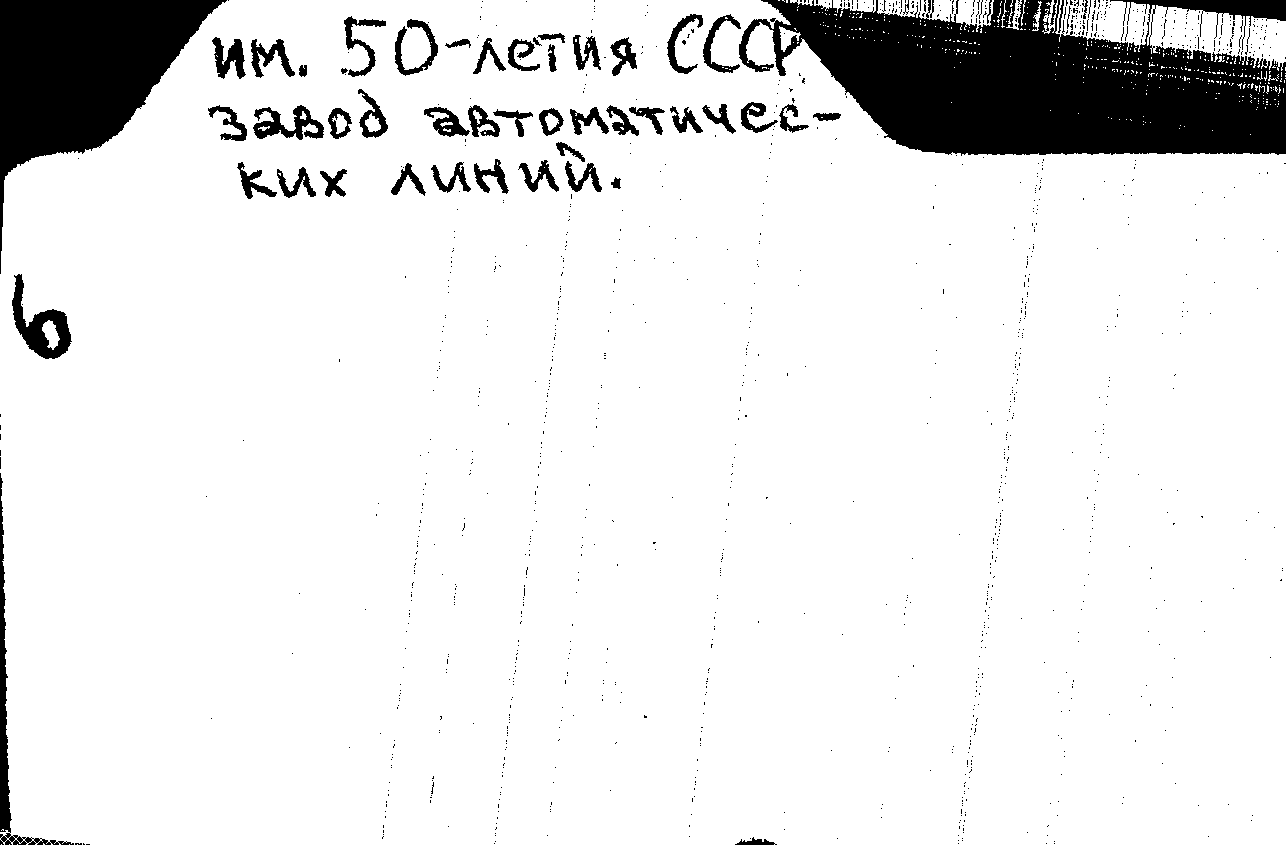 им. 50-летия СССР
завод автоматичес-
ких линий.
6